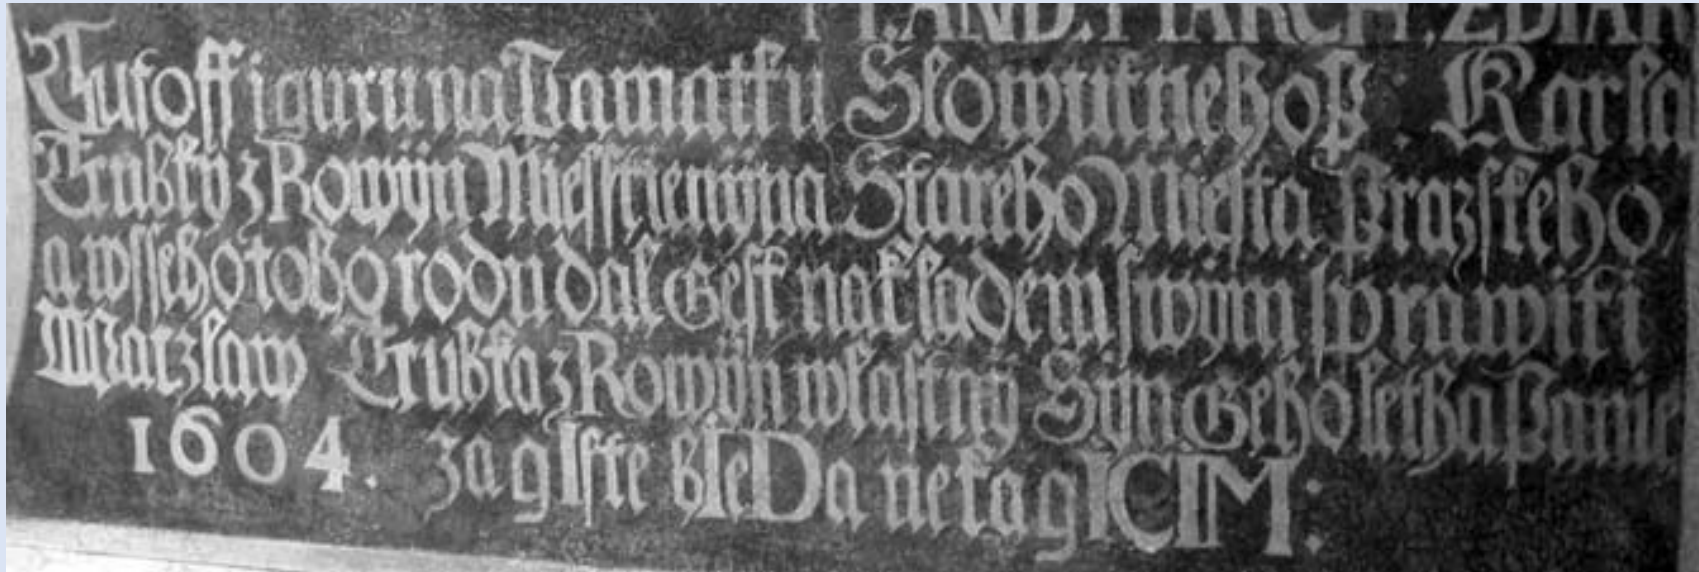 M.AND.MARCH.ZDIAR
Tuto ffiguru na Pamatku Slowutneho P: Karla
Trussky z Rowyn Miesstienyna Stareho Miesta Prazskeho
a wsseho toho rodu dal gest nakladem swym sprawiti
Warzlaw Trusska z Rowyn wlastny Syn geho letha Panie
1604. za gIste bIeDa nekagICIM: